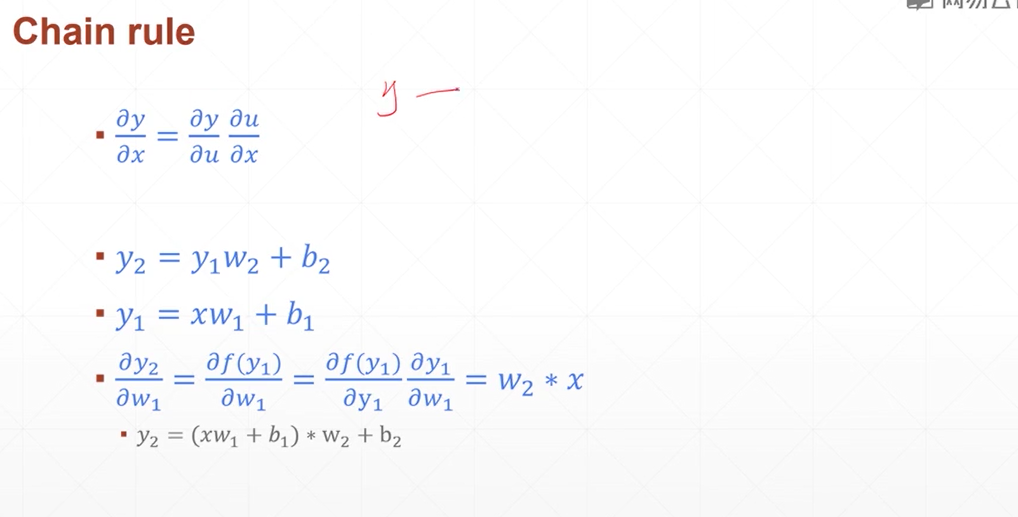 Chain rule
y —
∂y/∂x = ∂y/∂u ∂u/∂x
y₂ = y₁w₂ + b₂
y₁ = xw₁ + b₁
∂y₂/∂w₁ = ∂f(y₁)/∂w₁ = ∂f(y₁)/∂y₁ ∂y₁/∂w₁ = w₂ * x
y₂ = (xw₁ + b₁) * w₂ + b₂